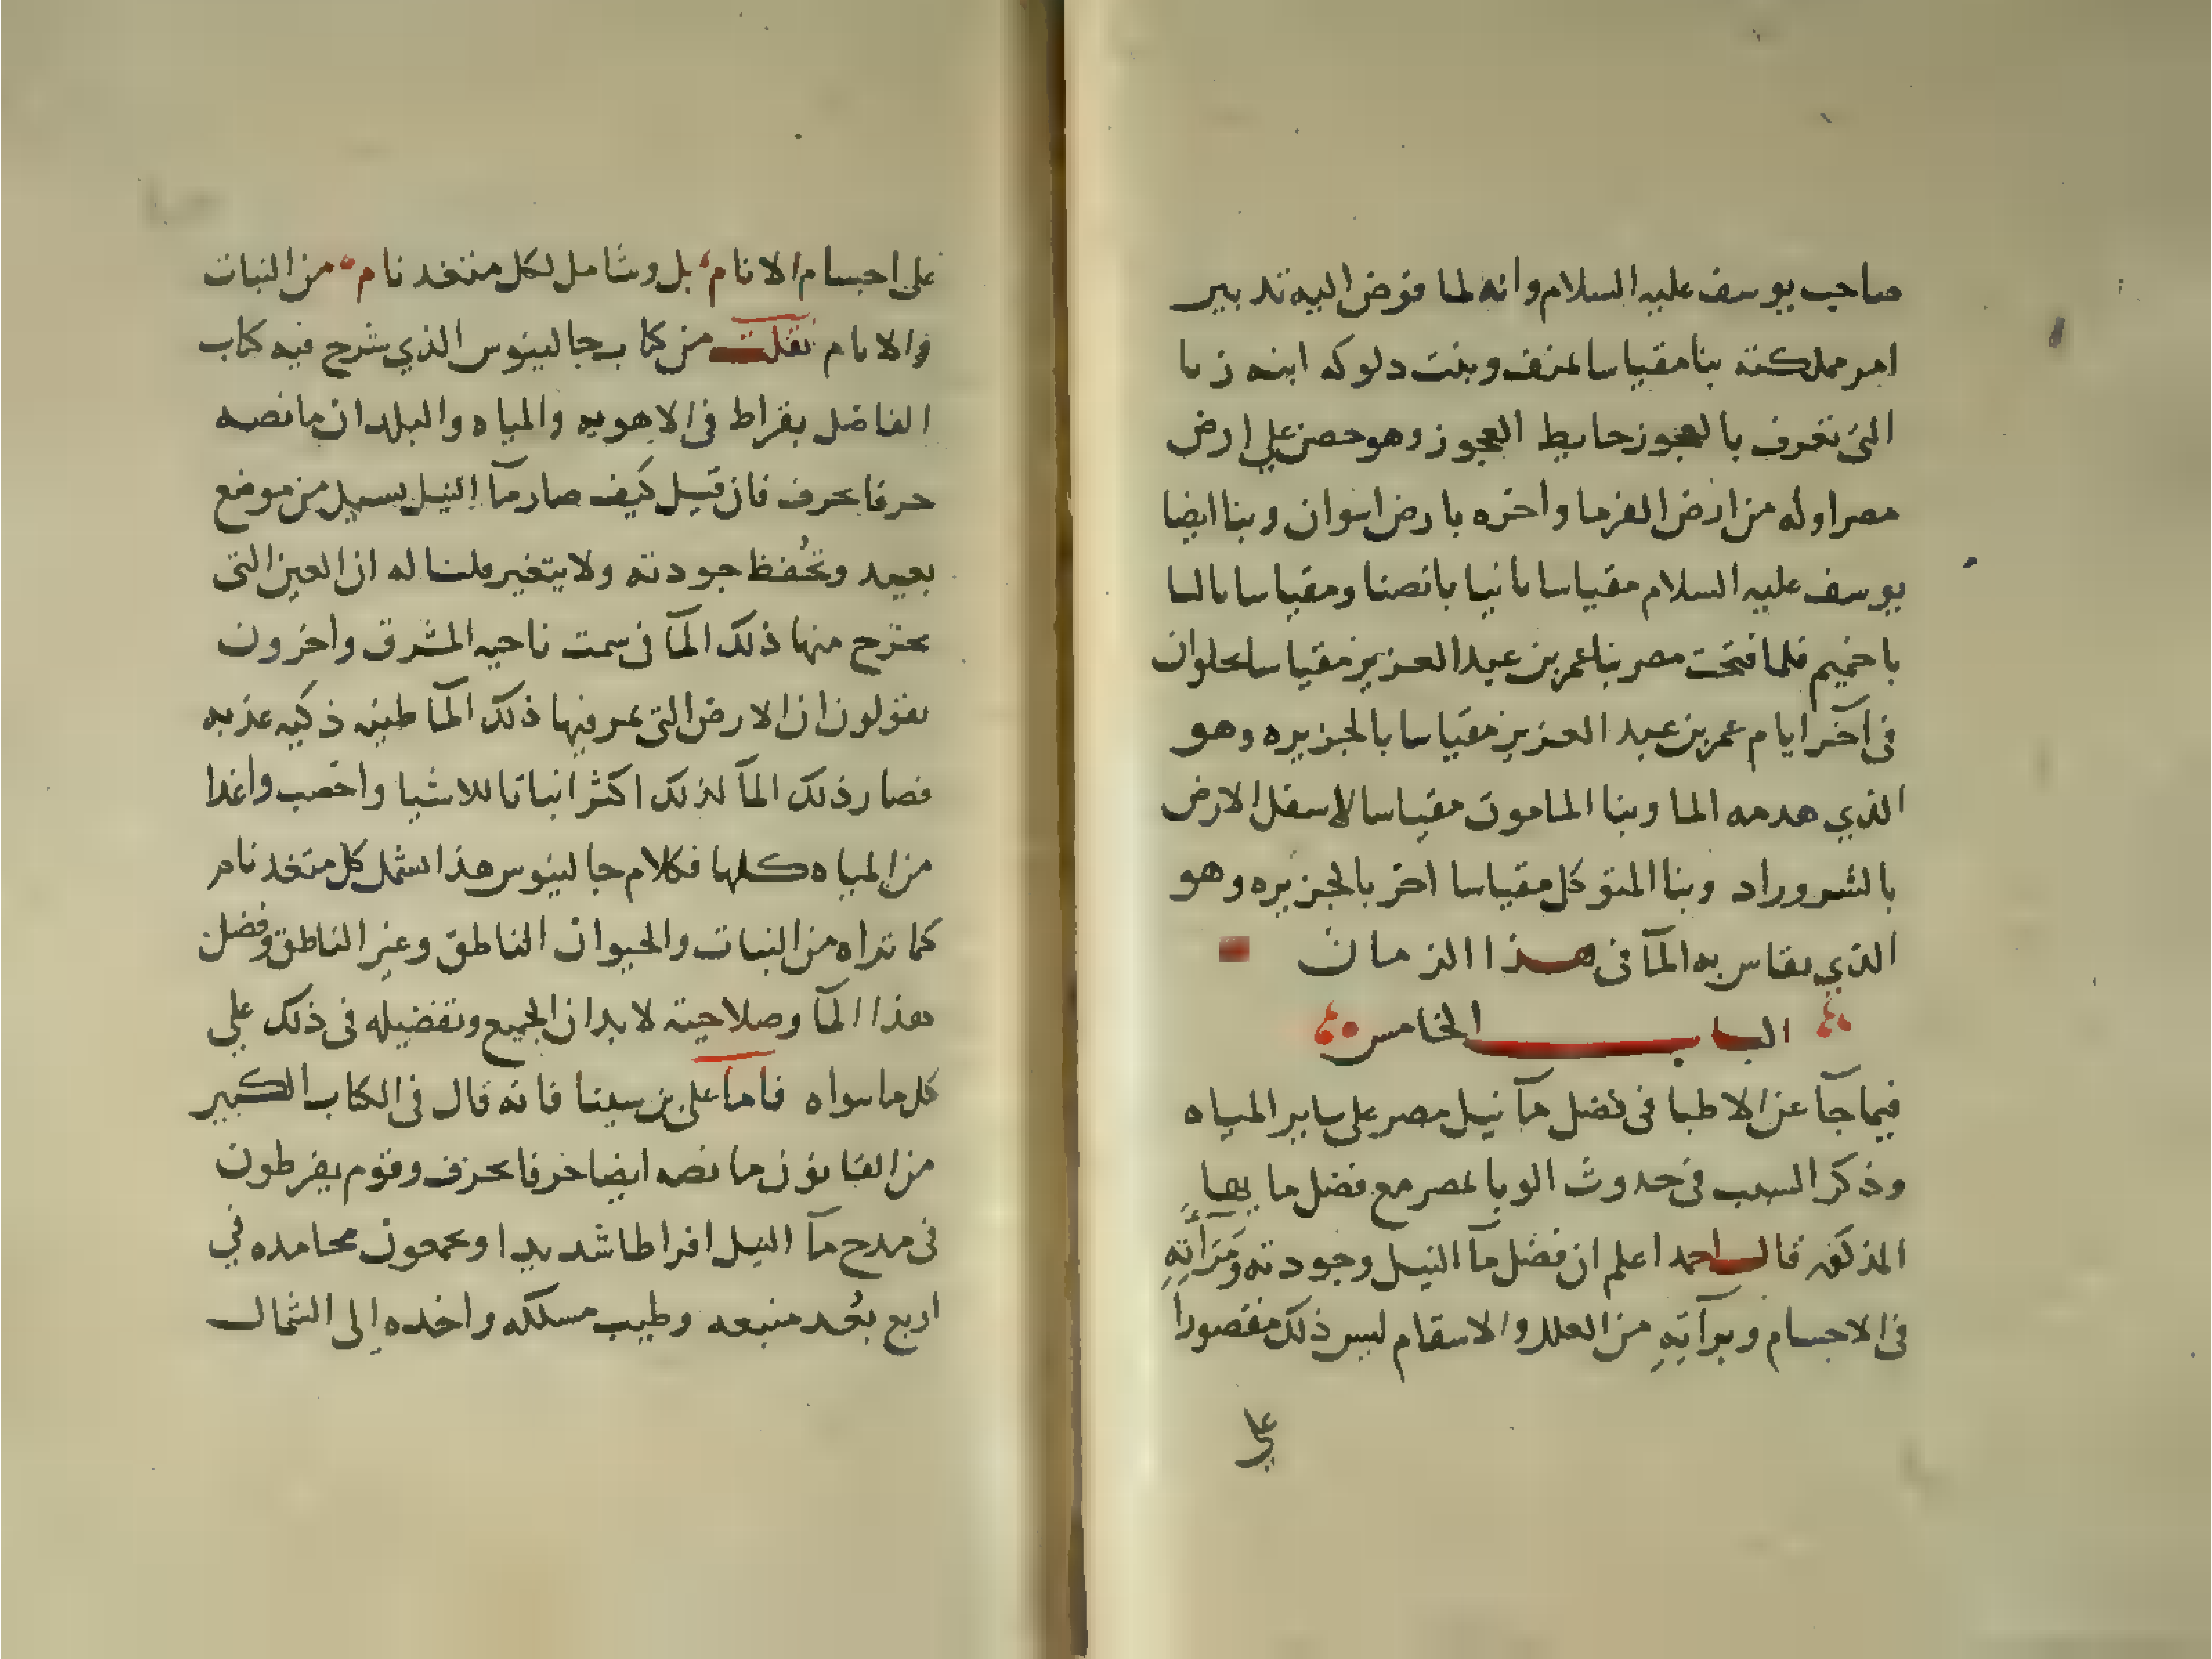 صاحب يوسف عليه السلام وانه لما فوض اليه تدبير
امر مملكته بنا مقياسا بمنف وبنت دلوكه ابنه زبا
التي تعرف بالعجوز حايط العجوز وهو حصن علي ارض
مصر اوله من ارض الفرما واخره بارض اسوان وبنا ايضا
يوسف عليه السلام مقياسا ثانيا بانصنا ومقياسا ثالثا
باخميم فلما فتحت مصر بنا عمر بن عبد العزيز مقياسا بحلوان
في آخر ايام عمر بن عبد العزيز مقياسا بالجزيره وهو
الذي هدمه الما وبنا المامون مقياسا لاسفل الارض
بالشروراد وبنا المتوكل مقياسا اخر بالجزيره وهو
الذي يقاس به المآ في هذا الزمان
الباب الخامس
فيما جآ عن الاطبا في فضل مآ نيل مصر على ساير المياه
وذكر السبب في حدوث الوبا بمصر مع فضل ما بها
قال احمد اعلم ان فضل مآ النيل وجودته
في الاجسام وبرآته من العلل والاسقام ليس ذلك مقصورا
علي
على اجسام الانام بل وشامل لكل متغد نام من النبات
والانام نقلت من كتاب جالينوس الذي شرح فيه كتاب
الفاضل بقراط في الاهويه والمياه والبلدان ما نصه
حرفا بحرف فان قيل كيف صار مآ النيل يسيل من موضع
بعيد وتحفظ جودته ولا يتغير قلنا له ان العين التي
يخرج منها ذلك المآ في سمت ناحيه المشرق واخرون
يقولون ان الارض التي يمر فيها ذلك المآ طينه ذكيه عذبه
فصار ذلك المآ لذلك اكثر انباتا للاشيا واخصب واغدا
من المياه كلها فكلام جالينوس هذا يشمل كل متغد نام
كما تراه من النبات والحيوان الناطق وغير الناطق وفضل
هذا المآ وصلاحيته لابدان الجميع وتفضيله في ذلك علي
كل ما سواه فاما على بن سينا فانه قال في الكتاب الكبير
من القانون ما نصه ايضا حرفا بحرف وقوم يفرطون
في مدح مآ النيل افراطا شديدا ويجمعون محامده في
اربع بُعد منبعه وطيب مسلكه واخده الى الشمال